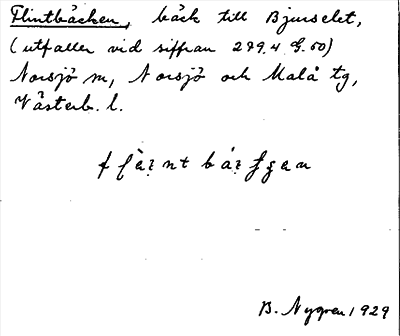 Flintbäcken, bäck till Bjurselet,
(utfaller vid siffran 279.4 G.50)
Norsjö sn, Norsjö och Malå tg,
Västerb. l.
B. Nygren 1929